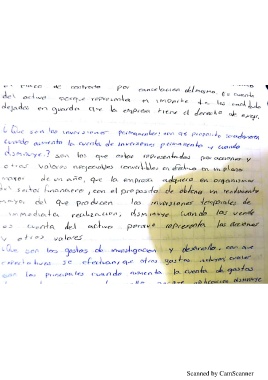 de contrato por cancelacion del mismo. Es cuenta
del activo porque representa el importe de las cantidades
dejadas en guardia que la empresa tiene el derecho de exigir.
¿Que son las inversiones permanentes, con que proposito se adquieren
cuando aumenta la cuenta de inversiones permanentes y cuando
disminuye? son las que estan representadas por acciones y
otros valores negociables convertibles en efectivo en un plazo
mayor de un año, que la empresa adquiere en organismos
del sector financiero, con el proposito de obtener un rendimiento
mayor del que producen las inversiones temporales de
inmediata realizacion, disminuye cuando las vende
es cuenta del activo porque representa las acciones
y otros valores.
¿Que son los gastos de investigacion y desarrollo, con que
se efectuan, que otros gastos
son los principales cuando aumenta la cuenta de gastos
disminuye
Scanned by CamScanner